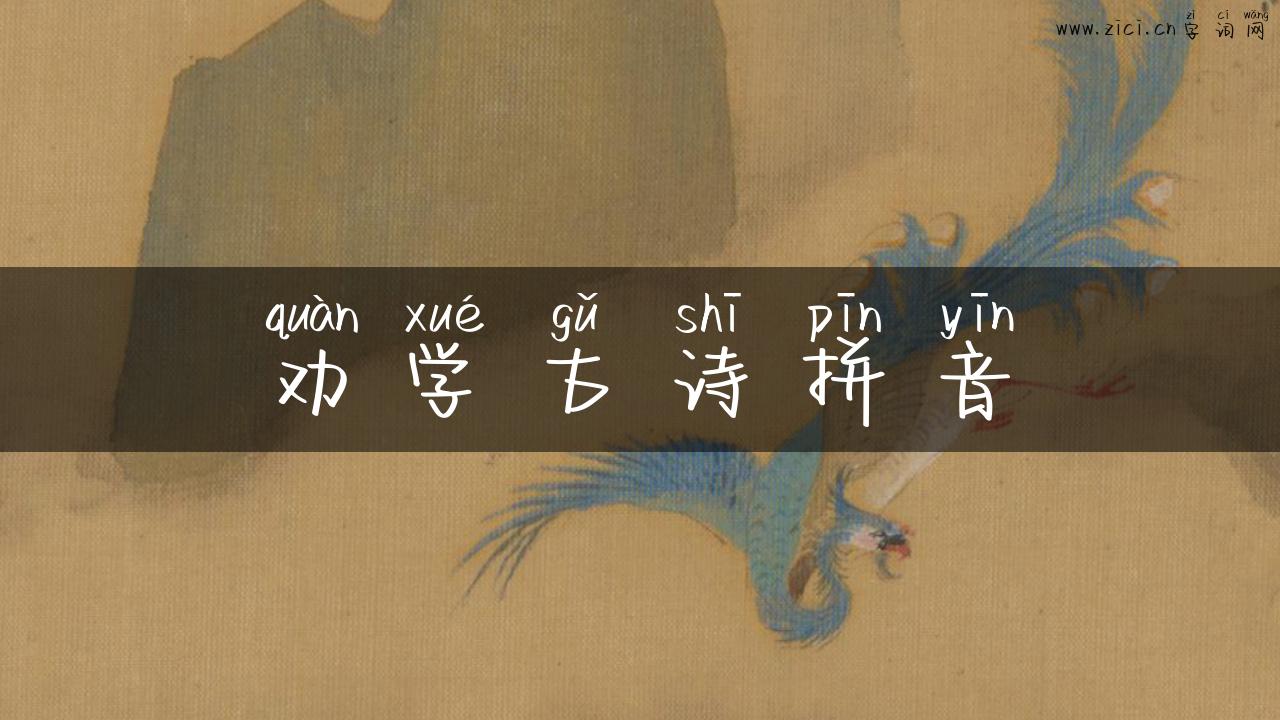 zì cí wǎng
www.zici.cn字词网
quàn xué gǔ shī pīn yīn
劝学古诗拼音